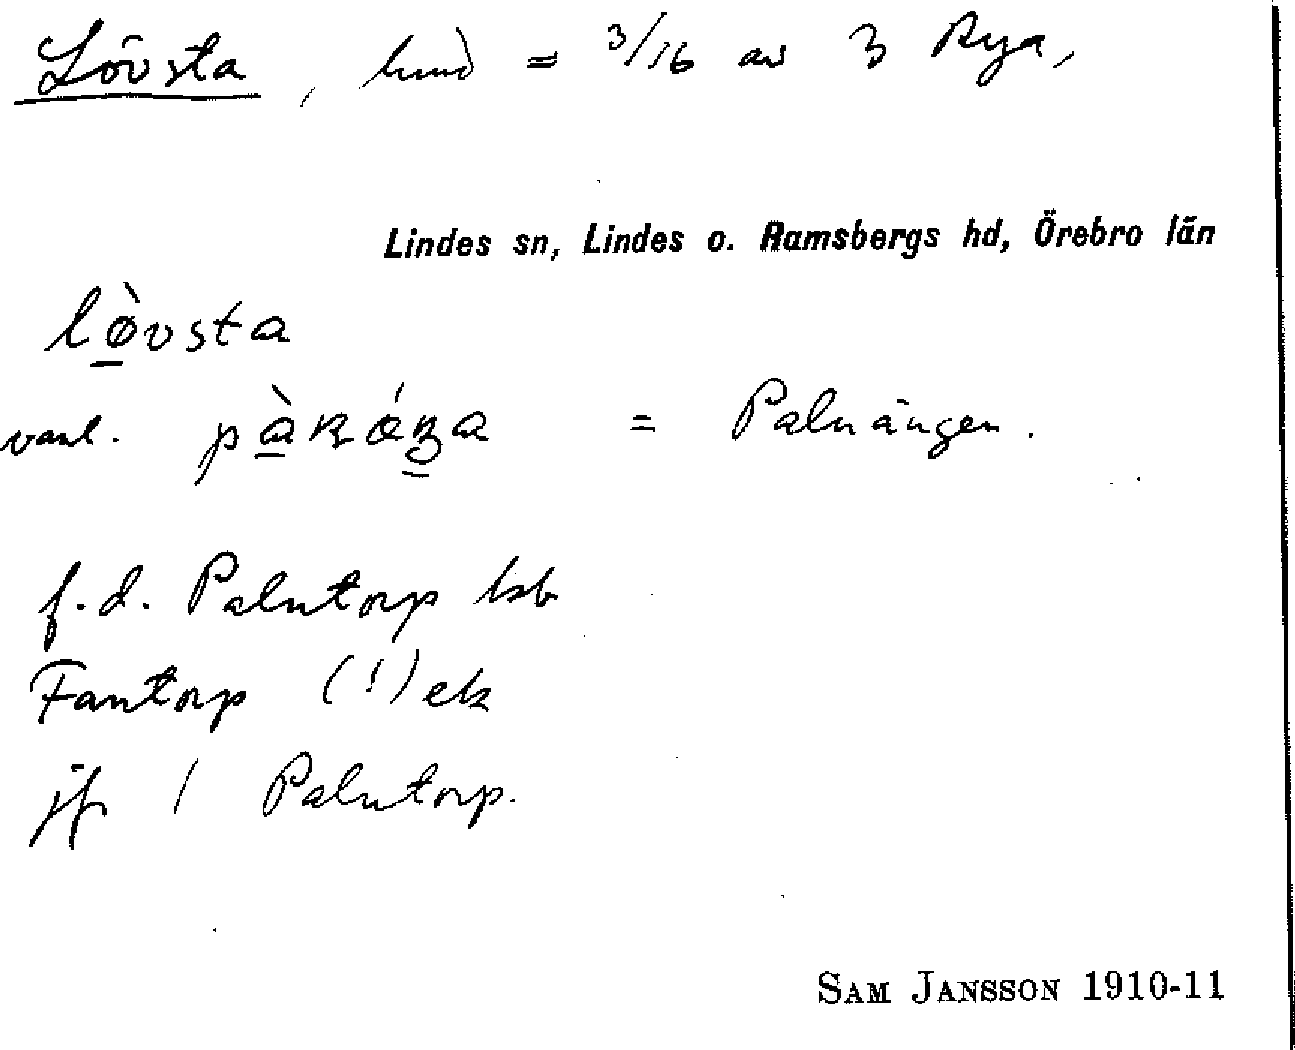 Lövsta, hmd = 3/16 av 3 Rya,
Lindes sn, Lindes o. Ramsbergs hd, Örebro län
lø̀vsta
vanl. = Palnängen.
f.d. Palntorp
Fantorp (!) ek
jfr 1 Palntorp.
SAM JANSSON 1910-11